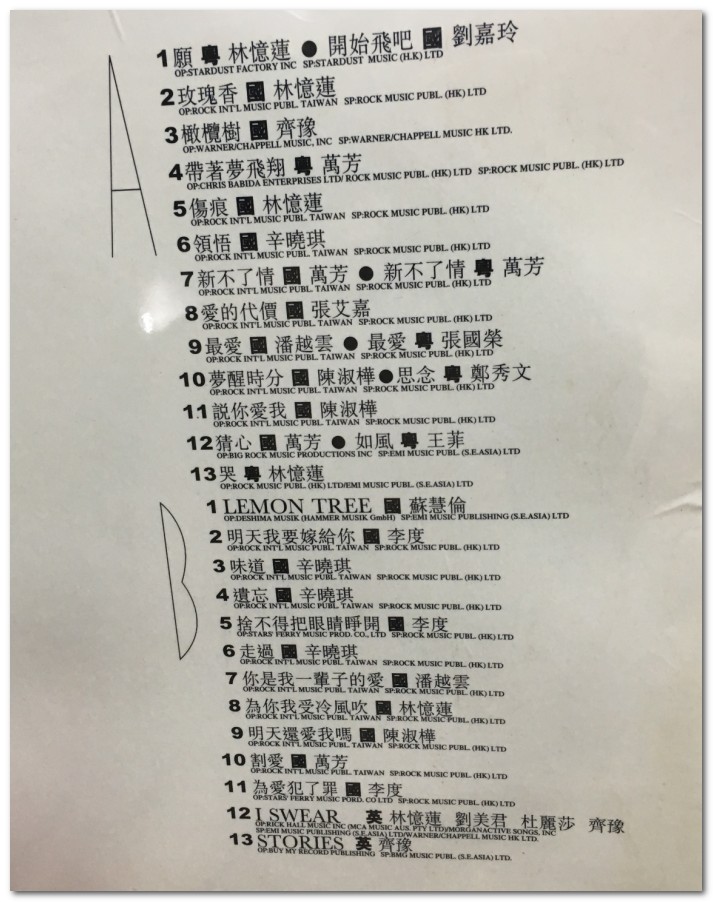 A
1 願 粵 林憶蓮 ● 開始飛吧 國 劉嘉玲
OP:STARDUST FACTORY INC SP:STARDUST MUSIC (H.K) LTD
2 玫瑰香 國 林憶蓮
OP:ROCK INT'L MUSIC PUBL. TAIWAN SP:ROCK MUSIC PUBL. (HK) LTD
3 橄欖樹 國 齊豫
OP:WARNER/CHAPPELL MUSIC, INC SP:WARNER/CHAPPELL MUSIC HK LTD.
4 帶著夢飛翔 粵 萬芳
OP:CHRIS BABIDA ENTERPRISES LTD/ ROCK MUSIC PUBL. (HK) LTD SP:ROCK MUSIC PUBL. (HK) LTD
5 傷痕 國 林憶蓮
OP:ROCK INT'L MUSIC PUBL. TAIWAN SP:ROCK MUSIC PUBL. (HK) LTD
6 領悟 國 辛曉琪
OP:ROCK INT'L MUSIC PUBL. TAIWAN SP:ROCK MUSIC PUBL. (HK) LTD
7 新不了情 國 萬芳 ● 新不了情 粵 萬芳
OP:ROCK INT'L MUSIC PUBL. TAIWAN SP:ROCK MUSIC PUBL. (HK) LTD
8 愛的代價 國 張艾嘉
OP:ROCK INT'L MUSIC PUBL. TAIWAN SP:ROCK MUSIC PUBL. (HK) LTD
9 最愛 國 潘越雲 ● 最愛 粵 張國榮
OP:ROCK INT'L MUSIC PUBL. TAIWAN SP:ROCK MUSIC PUBL. (HK) LTD
10 夢醒時分 國 陳淑樺●思念 粵 鄭秀文
OP:ROCK INT'L MUSIC PUBL. TAIWAN SP:ROCK MUSIC PUBL. (HK) LTD
11 說你愛我 國 陳淑樺
OP:ROCK INT'L MUSIC PUBL. TAIWAN SP:ROCK MUSIC PUBL. (HK) LTD
12 猜心 國 萬芳 ● 如風 粵 王菲
OP:BIG ROCK MUSIC PRODUCTIONS INC SP:EMI MUSIC PUBL. (S.E.ASIA) LTD
13 哭 粵 林憶蓮
OP:ROCK MUSIC PUBL. (HK) LTD/EMI MUSIC PUBL. (S.E.ASIA) LTD
B
1 LEMON TREE 國 蘇慧倫
OP:DESHIMA MUSIK (HAMMER MUSIK GmbH) SP:EMI MUSIC PUBLISHING (S.E.ASIA) LTD
2 明天我要嫁給你 國 李度
OP:ROCK INT'L MUSIC PUBL. TAIWAN SP:ROCK MUSIC PUBL. (HK) LTD
3 味道 國 辛曉琪
OP:ROCK INT'L MUSIC PUBL. TAIWAN SP:ROCK MUSIC PUBL. (HK) LTD
4 遺忘 國 辛曉琪
OP:ROCK INT'L MUSIC PUBL. TAIWAN SP:ROCK MUSIC PUBL. (HK) LTD
5 捨不得把眼睛睜開 國 李度
OP:STARS' FERRY MUSIC PROD. CO., LTD SP:ROCK MUSIC PUBL. (HK) LTD
6 走過 國 辛曉琪
OP:ROCK INT'L MUSIC PUBL. TAIWAN SP:ROCK MUSIC PUBL. (HK) LTD
7 你是我一輩子的愛 國 潘越雲
OP:ROCK INT'L MUSIC PUBL. TAIWAN SP:ROCK MUSIC PUBL. (HK) LTD
8 為你我受冷風吹 國 林憶蓮
OP:ROCK INT'L MUSIC PUBL. TAIWAN SP:ROCK MUSIC PUBL. (HK) LTD
9 明天還愛我嗎 國 陳淑樺
OP:ROCK INT'L MUSIC PUBL. TAIWAN SP:ROCK MUSIC PUBL. (HK) LTD
10 割愛 國 萬芳
OP:ROCK INT'L MUSIC PUBL. TAIWAN SP:ROCK MUSIC PUBL. (HK) LTD
11 為愛犯了罪 國 李度
OP:STARS' FERRY MUSIC PORD. CO LTD SP:ROCK MUSIC PUBL. (HK) LTD
12 I SWEAR 英 林憶蓮 劉美君 杜麗莎 齊豫
OP:RICK HALL MUSIC INC (MCA MUSIC AUS. PTY LTD)/MORGANACTIVE SONGS, INC
SP:EMI MUSIC PUBLISHING (S.E.ASIA) LTD/WARNER/CHAPPELL MUSIC HK LTD.
13 STORIES 英 齊豫
OP:BUY MY RECORD PUBLISHING SP:BMG MUSIC PUBL. (S.E.ASIA) LTD.